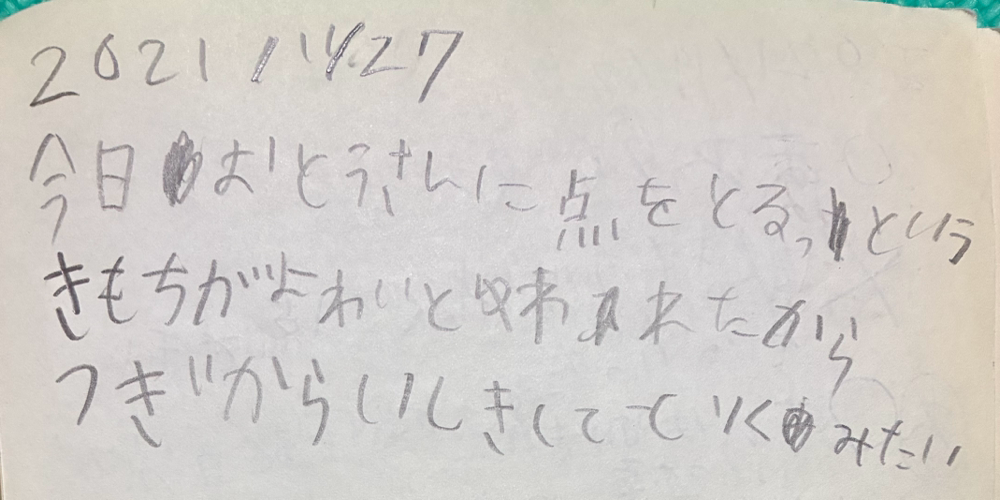 2021/11/27
今日おとうさんに点をとる。という
きもちがよわいといわれたから
つぎからいしきしててりくみたい